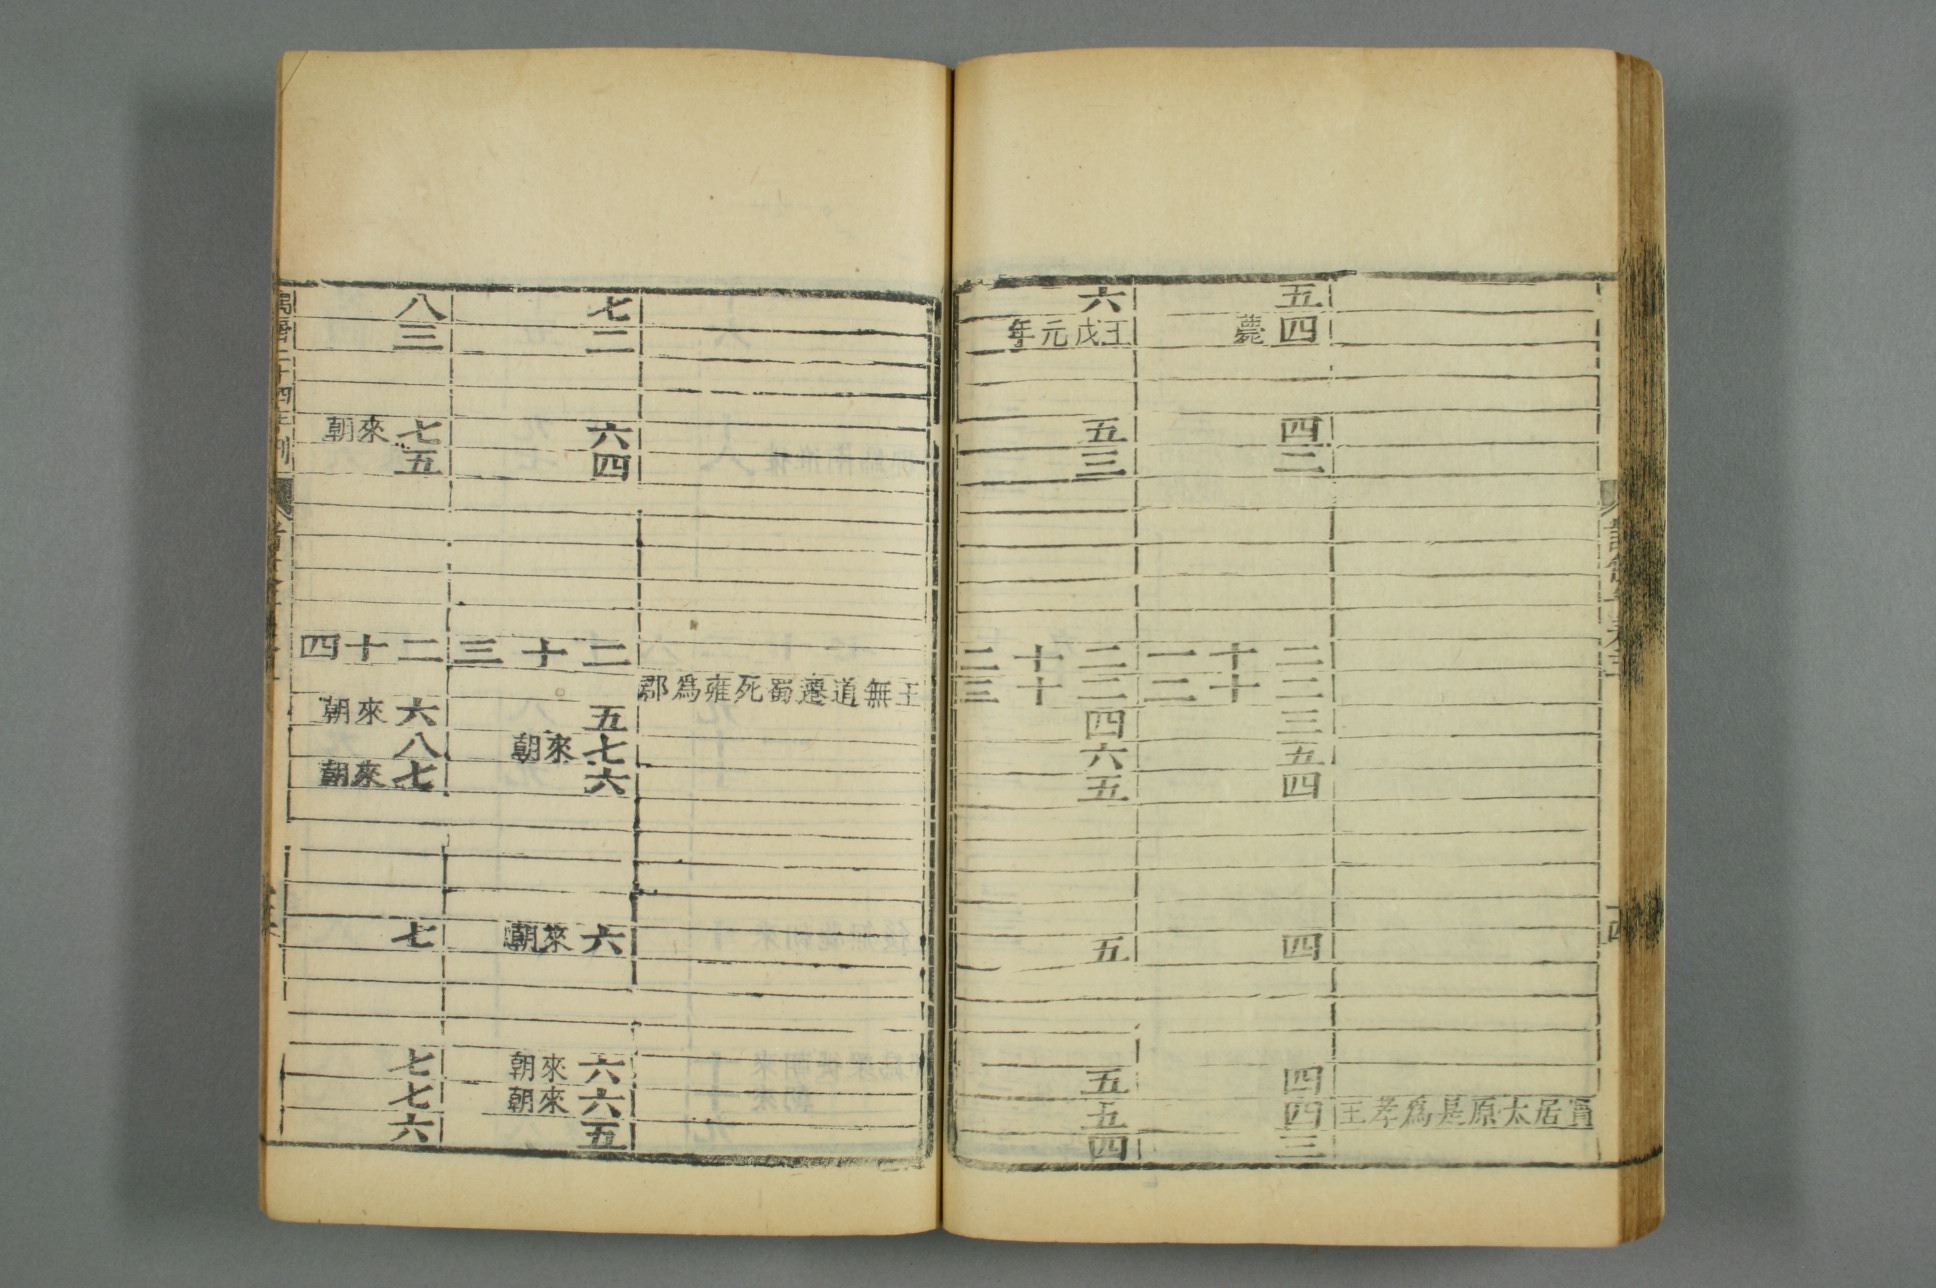 實居太原是爲孝王
五
四 薨
四
二
二十一
二十二
三
五
四
四
四
四
三
六
王戊元年
五
三
二十二
二十三
四
六
五
五
五
五
四
王無道遷蜀死雍爲郡
七
二
六
四
二十三
五
七 來朝
六
六 來朝
六 來朝
六 來朝
五
八
三
七 來朝
五
二十四
六 來朝
八
七 來朝
七
七
七
六
萬曆二十四年刊